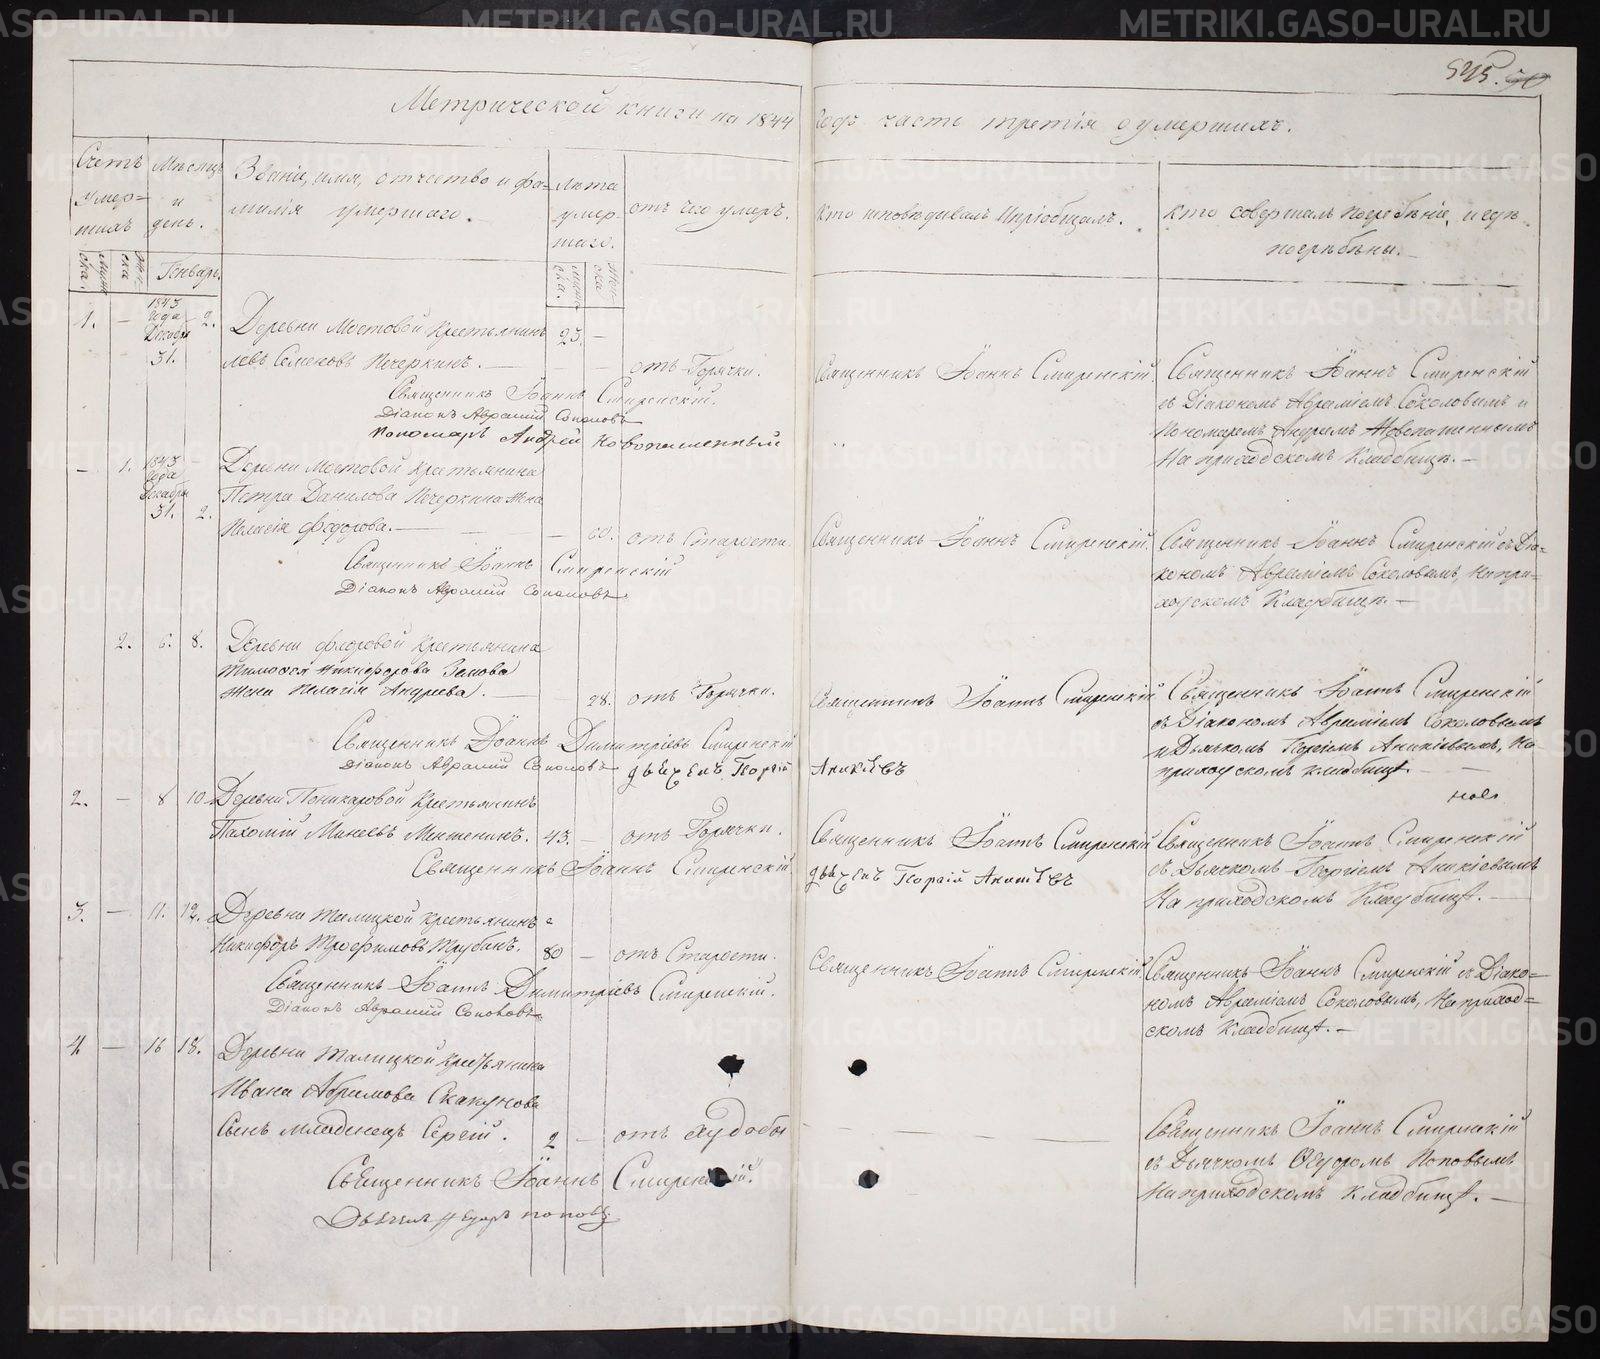 545. 50
Метрической книги на 1844 годъ часть третія о умершихъ.
Счетъ умер=шихъ
Мѣсяцъ и день.
Званіе, имя, отчество и фа=
милія умершаго.
Лѣта умер=шаго.
отъ чего умеръ.
Кто исповѣдывалъ и пріобщалъ.
Кто совершалъ погребѣніе, и гдѣ
погребѣны.
Генварь.
1. — 1843 года Декабря 31. 2.
Деревни Мостовой Крестьянинъ 23. —
Левъ Семеновъ Печеркинъ. — отъ Горячки.
Священникъ Іоаннъ Смиренскій.
Діаконъ Аврамій Соколовъ
Пономарь Андрей Новопашенный
Священникъ Іоаннъ Смиренскій.
Священникъ Іоаннъ Смиренскій
съ Діакономъ Авраміемъ Соколовымъ и
Пономаремъ Андреемъ Новопашеннымъ
На приходскомъ Кладбищѣ. —
— 1. 1843 года Декабря 31. 2.
Деревни Мостовой Крестьянина
Петра Данилова Печеркина жена
Пелагія Федорова. — 60. отъ Старости.
Священникъ Іоаннъ Смиренскій
Діаконъ Аврамій Соколовъ
Священникъ Іоаннъ Смиренскій.
Священникъ Іоаннъ Смиренскій съ Діа=
кономъ Авраміемъ Соколовымъ, На при=
ходскомъ Кладбищѣ. —
2. 6. 8. Деревни Федоровой Крестьянина
Тимофея Никифорова Зенова
жена Пелагія Андреева. — 28. отъ Горячки.
Священникъ Іоаннъ Димитріевъ Смиренскій
Діаконъ Аврамій Соколовъ дьячекъ Георгій Аникіевъ
Священникъ Іоаннъ Смиренскій
Священникъ Іоаннъ Смиренскій
съ Діакономъ Авраміемъ Соколовымъ
и Дьячкомъ Георгіемъ Аникіевымъ, На
приходскомъ кладбищѣ —
2. — 8 10. Деревни Поникаровой Крестьянинъ
Пахомій Минеевъ Меншенинъ. 43. — отъ Горячки.
Священникъ Іоаннъ Смиренскій.
дьячекъ Георгій Аникіевъ
Священникъ Іоаннъ Смиренскій
Священникъ Іоаннъ Смиренскій
съ Дьячкомъ Георгіемъ Аникіевымъ
На приходскомъ Кладбищѣ. —
3. — 11. 12. Деревни Талицкой крестьянинъ
Никифоръ Трофимовъ Трубинъ. 80 — отъ Старости.
Священникъ Іоаннъ Димитріевъ Смиренскій.
Діаконъ Аврамій Соколовъ
Священникъ Іоаннъ Смиренскій
Священникъ Іоаннъ Смиренскій съ Діако=
номъ Авраміемъ Соколовымъ, На приход=
скомъ Кладбищѣ. —
4 — 16 18. Деревни Талицкой крестьянина
Ивана Абрамова Скакунова
Сынъ младенецъ Сергій. 2 — отъ худобы
Священникъ Іоаннъ Смиренскій.
Дьячекъ Федоръ Поповъ
Священникъ Іоаннъ Смиренскій
съ Дьячкомъ Федоромъ Поповымъ
На приходскомъ Кладбищѣ. —
METRIKI.GASO-URAL.RU